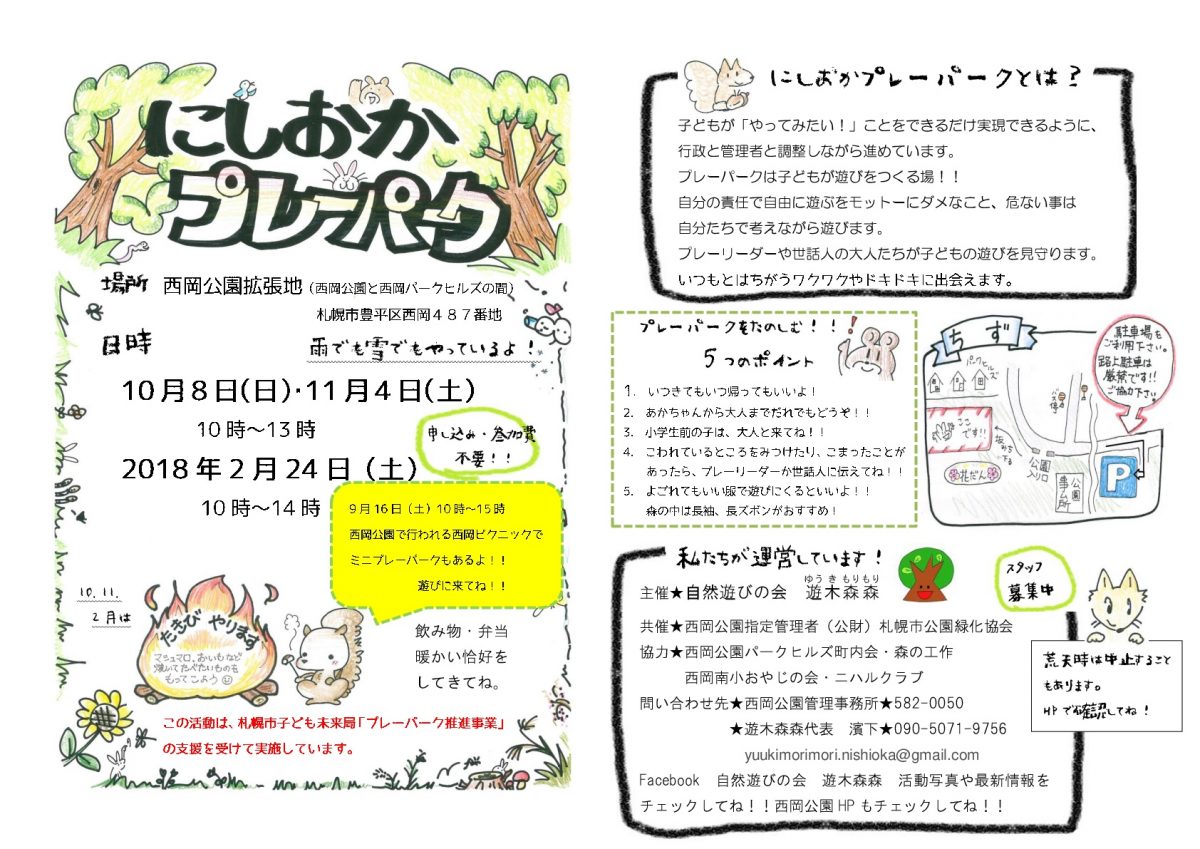 にしおか
プレーパーク
場所 西岡公園拡張地(西岡公園と西岡パークヒルズの間)
札幌市豊平区西岡487番地
日時 雨でも雪でもやっているよ!
10月8日(日)・11月4日(土)
10時~13時
申し込み・参加費
不要!!
2018年2月24日(土)
10時~14時
9月16日(土)10時~15時
西岡公園で行われる西岡ピクニックで
ミニプレーパークもあるよ!!
遊びに来てね!!
10.11.
2月は
たきび やります
マシュマロ、おいもなど
焼いてたべたいものを
もってこよう
飲み物・弁当
暖かい恰好を
してきてね。
この活動は、札幌市子ども未来局「プレーパーク推進事業」
の支援を受けて実施しています。
にしおかプレーパークとは?
子どもが「やってみたい!」ことをできるだけ実現できるように、
行政と管理者と調整しながら進めています。
プレーパークは子どもが遊びをつくる場!!
自分の責任で自由に遊ぶをモットーにダメなこと、危ない事は
自分たちで考えながら遊びます。
プレーリーダーや世話人の大人たちが子どもの遊びを見守ります。
いつもとはちがうワクワクやドキドキに出会えます。
プレーパークをたのしむ!!!
5つのポイント
1. いつきてもいつ帰ってもいいよ!
2. あかちゃんから大人までだれでもどうぞ!!
3. 小学生前の子は、大人と来てね!!
4. こわれているところをみつけたり、こまったことが
あったら、プレーリーダーか世話人に伝えてね!!
5. よごれてもいい服で遊びにくるといいよ!!
森の中は長袖、長ズボンがおすすめ!
ちず
駐車場を
ご利用下さい。
路上駐車は
厳禁です!!
ご協力下さい。
パークヒルズ
バス停
ここ
です!!
坂みち
下る
花だん
公園
入り口
公園
事ム所
P
私たちが運営しています!
ゆうき もりもり
主催★自然遊びの会 遊木森森
スタッフ
募集中
共催★西岡公園指定管理者(公財)札幌市公園緑化協会
協力★西岡公園パークヒルズ町内会・森の工作
西岡南小おやじの会・ニハルクラブ
問い合わせ先★西岡公園管理事務所★582-0050
★遊木森森代表 濱下★090-5071-9756
yuukimorimori.nishioka@gmail.com
Facebook 自然遊びの会 遊木森森 活動写真や最新情報を
チェックしてね!!西岡公園HPもチェックしてね!!
荒天時は中止すること
もあります。
HPで確認してね!